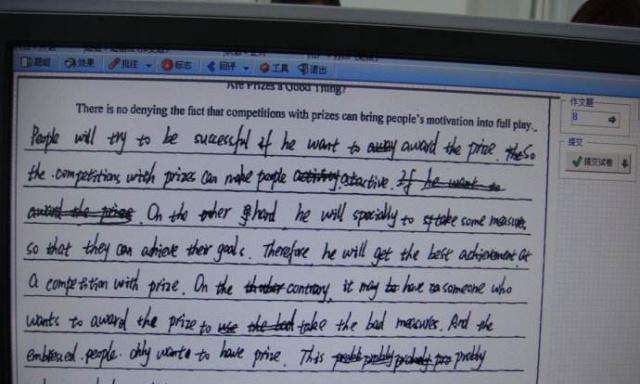 题组 效果 批注 标志 回评 工具 退出
Are Prizes a Good Thing?
作文题
8
提交
提交试卷
There is no denying the fact that competitions with prizes can bring people's motivation into full play.
People will try to be successful if he want to award the prize. So
the competitions with prizes can make people active. If he want to
award the prize. On the other hand, he will specially to take some measures,
so that they can achieve their goals. Therefore he will get the best achievement at
a competition with prize. On the contrary, it may have someone who
wants to award the prize to use the bad take the bad measures. And the
people only wants to have prize. This probly